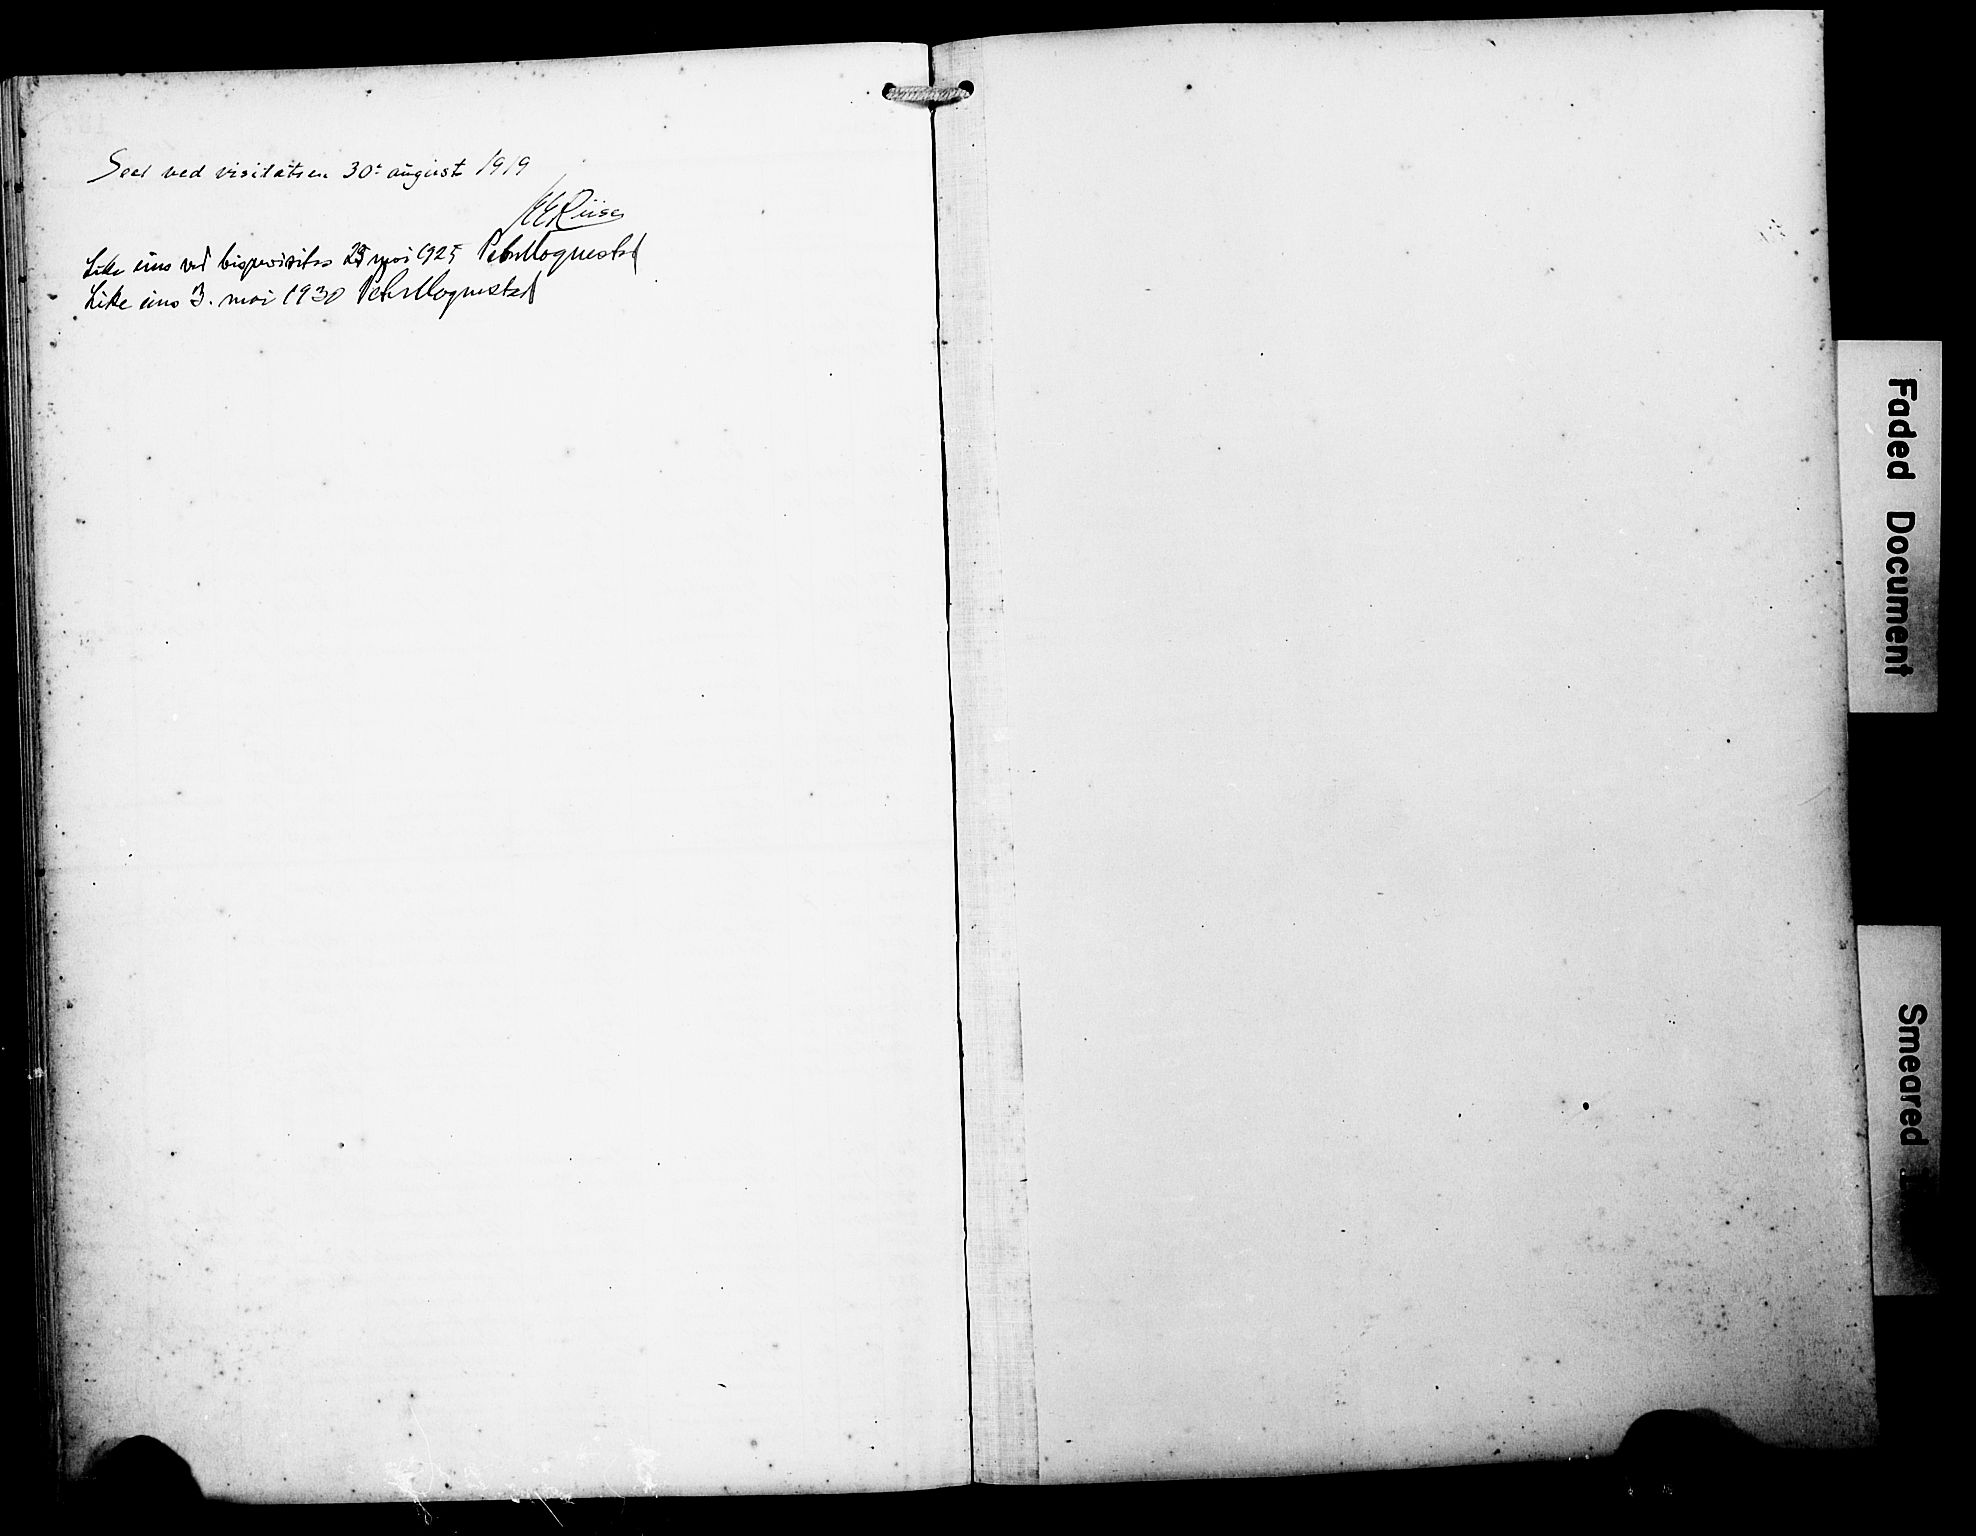 Seet ved visitatsen 30te august 1919
Riise
Like eins ved bispevisitas 29 mai 1925 Petr Hognestad
Like eins 3. mai 1930 Petr Hognestad
Faded Document
Smeared